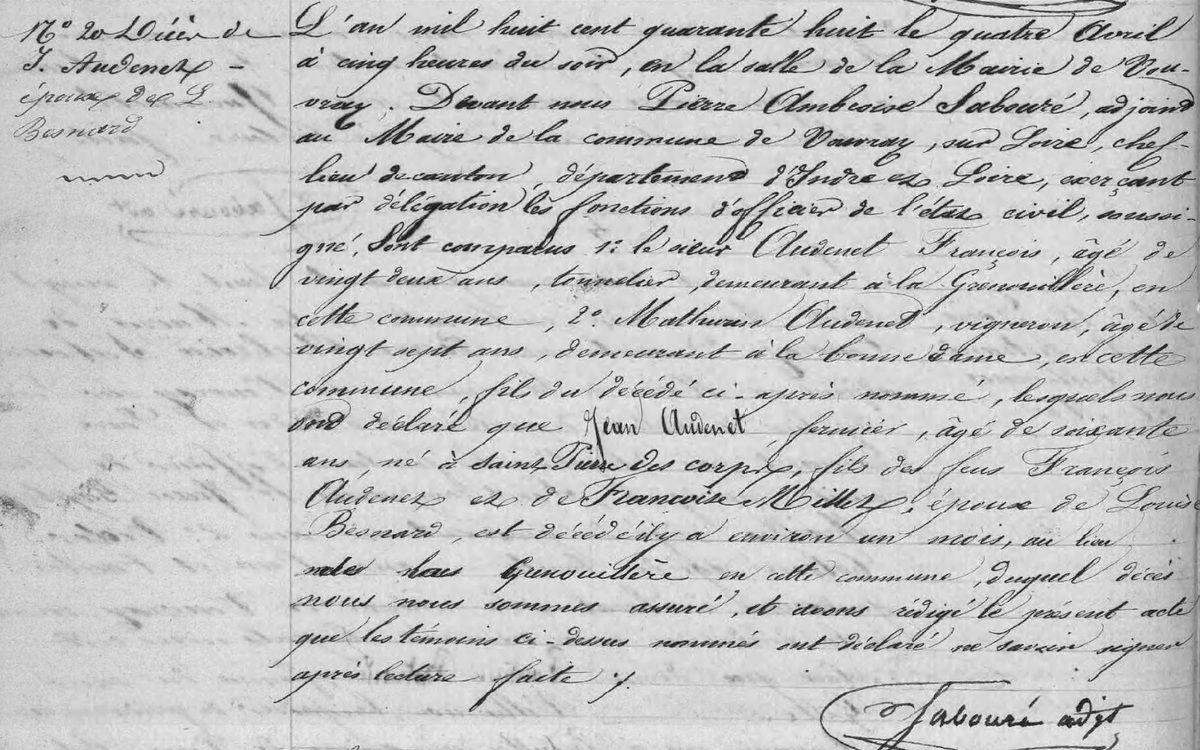 N° 20 Décès de
J. Audenet
époux de L
Besnard
L'an mil huit cent quarante huit le quatre Avril
à cinq heures du soir, en la salle de la Mairie de Vou-
vray. Devant nous Pierre Ambroise Sabouré, adjoint
au Maire de la commune de Vouvray, sur Loire, chef-
lieu de canton, département d'Indre et Loire, exerçant
par délégation les fonctions d'officier de l'état civil, soussi-
gné, Sont comparus 1° le sieur Audenet François, âgé de
vingt deux ans, tonnelier, demeurant à la Grenouillère, en
cette commune, 2° Mathurin Audenet, vigneron, âgé de
vingt sept ans, demeurant à la bonne dame, en cette
commune, fils du décédé ci-après nommé, lesquels nous
ont déclaré que Jean Audenet, fermier, âgé de soixante
ans, né à Saint Pierre des corps, fils de feus François
Audenet et de Françoise Millet, époux de Louise
Besnard, est décédé il y a environ un mois, au lieu
de la Grenouillère en cette commune, duquel décès
nous nous sommes assuré, et avons rédigé le présent acte
que les témoins ci-dessus nommés ont déclaré ne savoir signer
après lecture faite ./.
Sabouré adjt